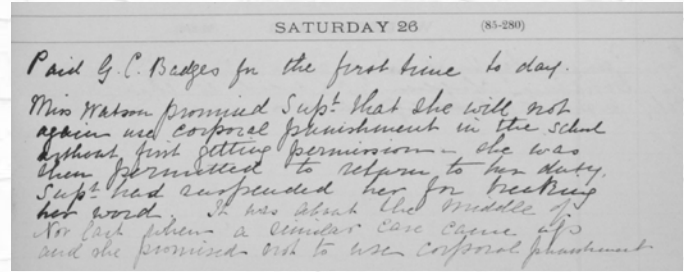 SATURDAY 26 (85-280)
Paid G. C. Badges for the first time to day.
Miss Watson promised Supt that she will not
again use corporal punishment in the school
without first getting permission – she was
then permitted to return to her duty.
Supt had suspended her for breaking
her word. It was about the middle of
Nov last when a similar case came up
and she promised not to use corporal punishment